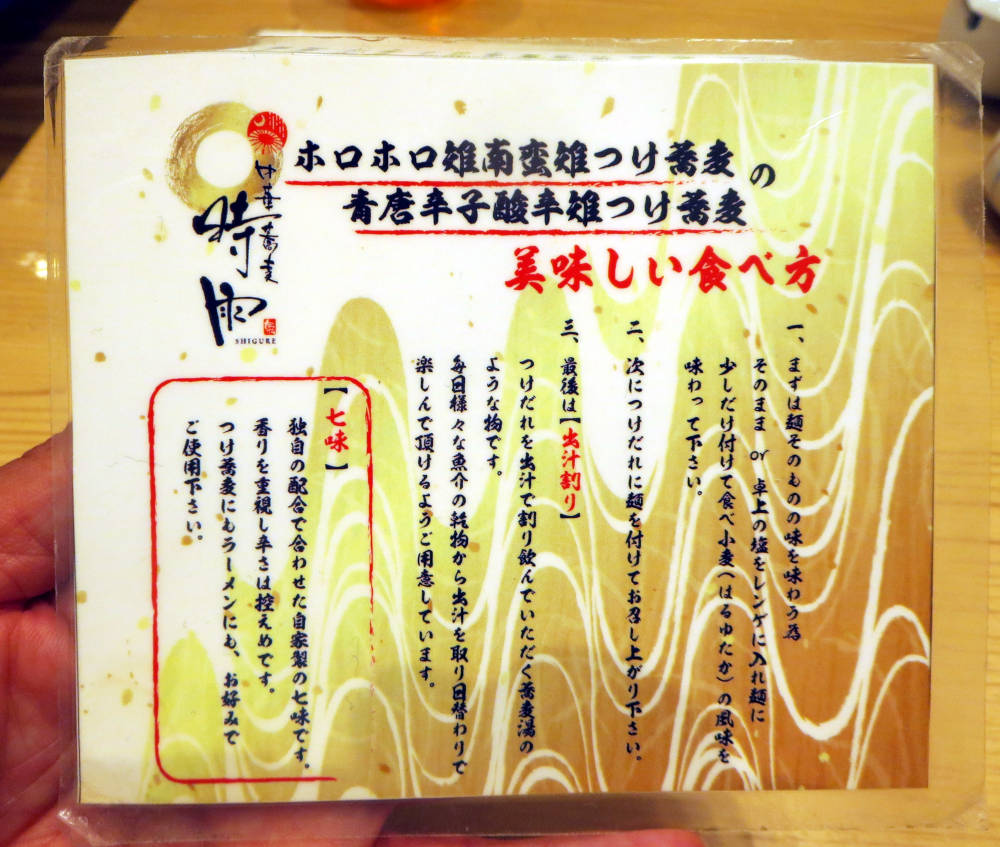 中華蕎麦
時雨
SHIGURE
ホロホロ雉南蛮雉つけ蕎麦の
青唐辛子酸辛雉つけ蕎麦
美味しい食べ方
一、まずは麺そのものの味を味わう為
そのまま or 卓上の塩をレンゲに入れ麺に
少しだけ付けて食べ小麦(はるゆたか)の風味を
味わって下さい。
二、次につけだれに麺を付けてお召し上がり下さい。
三、最後は【出汁割り】
つけだれを出汁で割り飲んでいただく蕎麦湯の
ような物です。
毎回様々な魚介の乾物から出汁を取り日替わりで
楽しんで頂けるようご用意しています。
【七味】
独自の配合で合わせた自家製の七味です。
香りを重視し辛さは控えめです。
つけ蕎麦にもラーメンにも、お好みで
ご使用下さい。